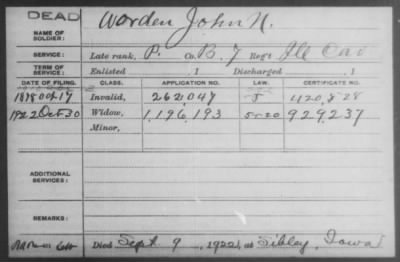 DEAD
NAME OF SOLDIER: Worden John N.
SERVICE: Late rank, P. Co. B, 7 Reg't Ill Cav
TERM OF SERVICE: Enlisted , 1 Discharged , 1
DATE OF FILING. CLASS. APPLICATION NO. LAW. CERTIFICATE NO.
1878 Oct 17 Invalid, 262.047 420,828
1922 Oct 30 Widow, 1,196,193 5-1-20 929237
Minor,
ADDITIONAL SERVICES:
REMARKS:
Died Sept. 9, 1922, at Sibley, Iowa